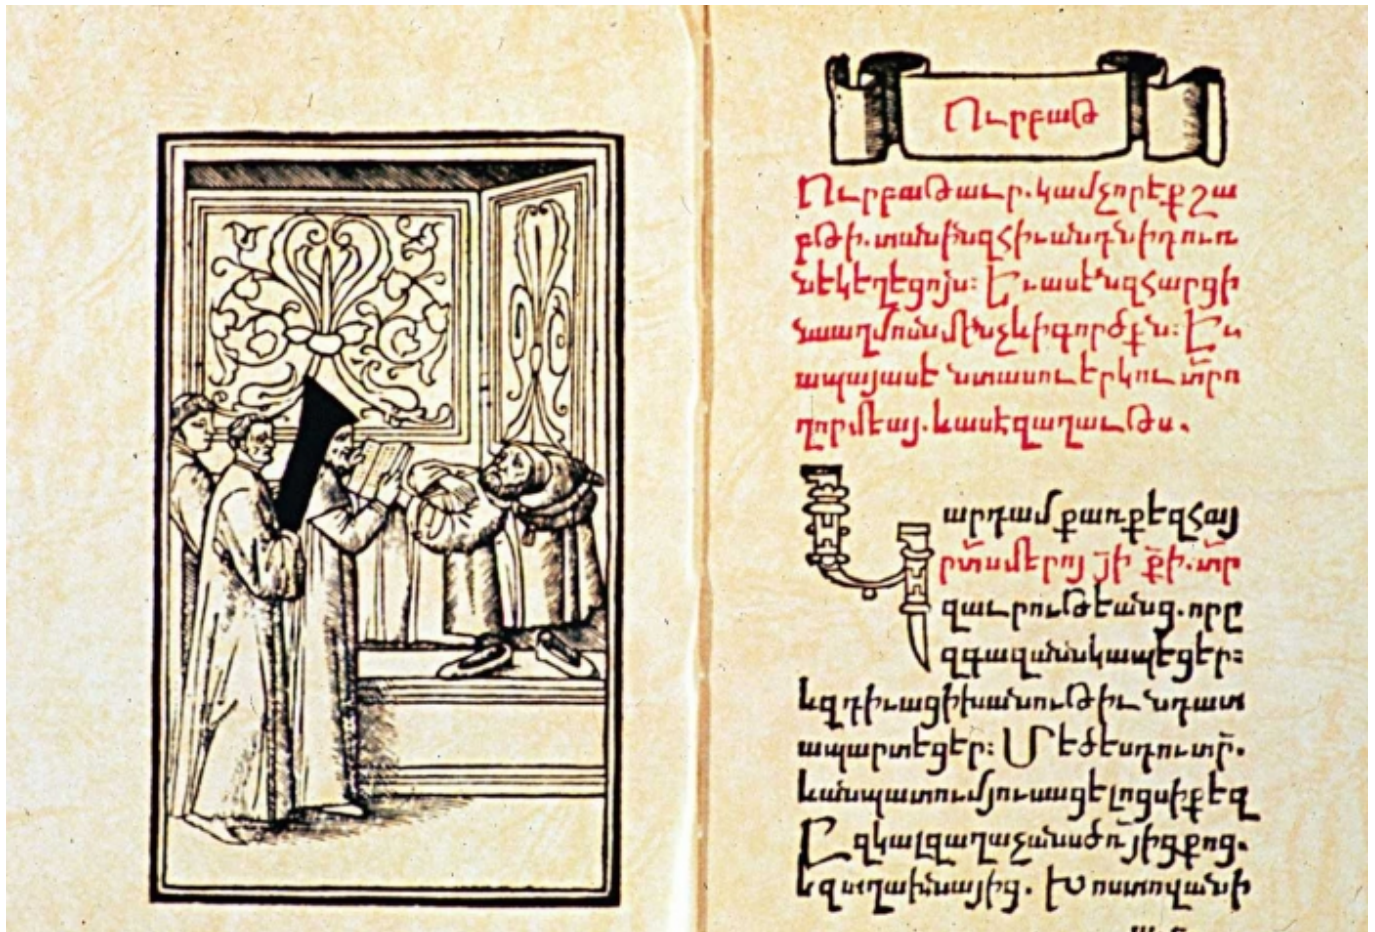 Ուրբաթ
Ուրբաթաւր. կամ չորեք շա
բթի. տանին զհիւանդն ի դուռ
ն եկեղեցոյս։ Եւ ասեն զհարցի
ն սաղմոսն մինչև ի գործքն։ Եւ
ապա յասէ նտասու երկու տր̃ո
ղորմեայ. և ասէ զաղաւթս.
Կարդամ ք առ քեզ հայ
ր տն̃ մերոյ յի̃ ք̃ի. տր̃
զաւրութեանց. որը
զգազանն կապեցեր։
և զդիւացի խանութիւնն դատ
ապարտեցեր։ Մեծ ես դու տր̃.
և անպատում յուսացելոցս ի քեզ
Ըզկալ զաղաչանս ծռ̃յից քոց.
և զաղախնայից. Խոստովանի